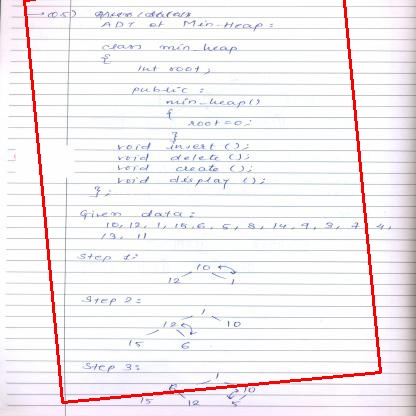 → Q5)
ADT of Min-Heap:
class min_heap
{
int root;
public:
min_heap()
{
root=0;
}
void invert();
void delete();
void create();
void display();
};
Given data:
10, 12, 1, 15, 6, 5, 8, 14, 9, 3, 7, 4,
13, 11
Step 1:
10
12 1
Step 2:
1
12 10
15 6
Step 3:
1
6 10
15 12 5